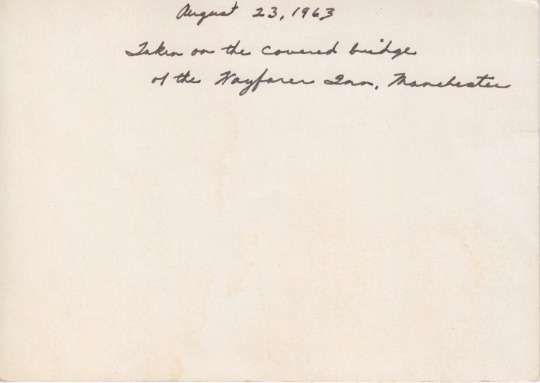 August 23, 1963
Taken on the covered bridge
of the Wayfarer Inn, Manchester